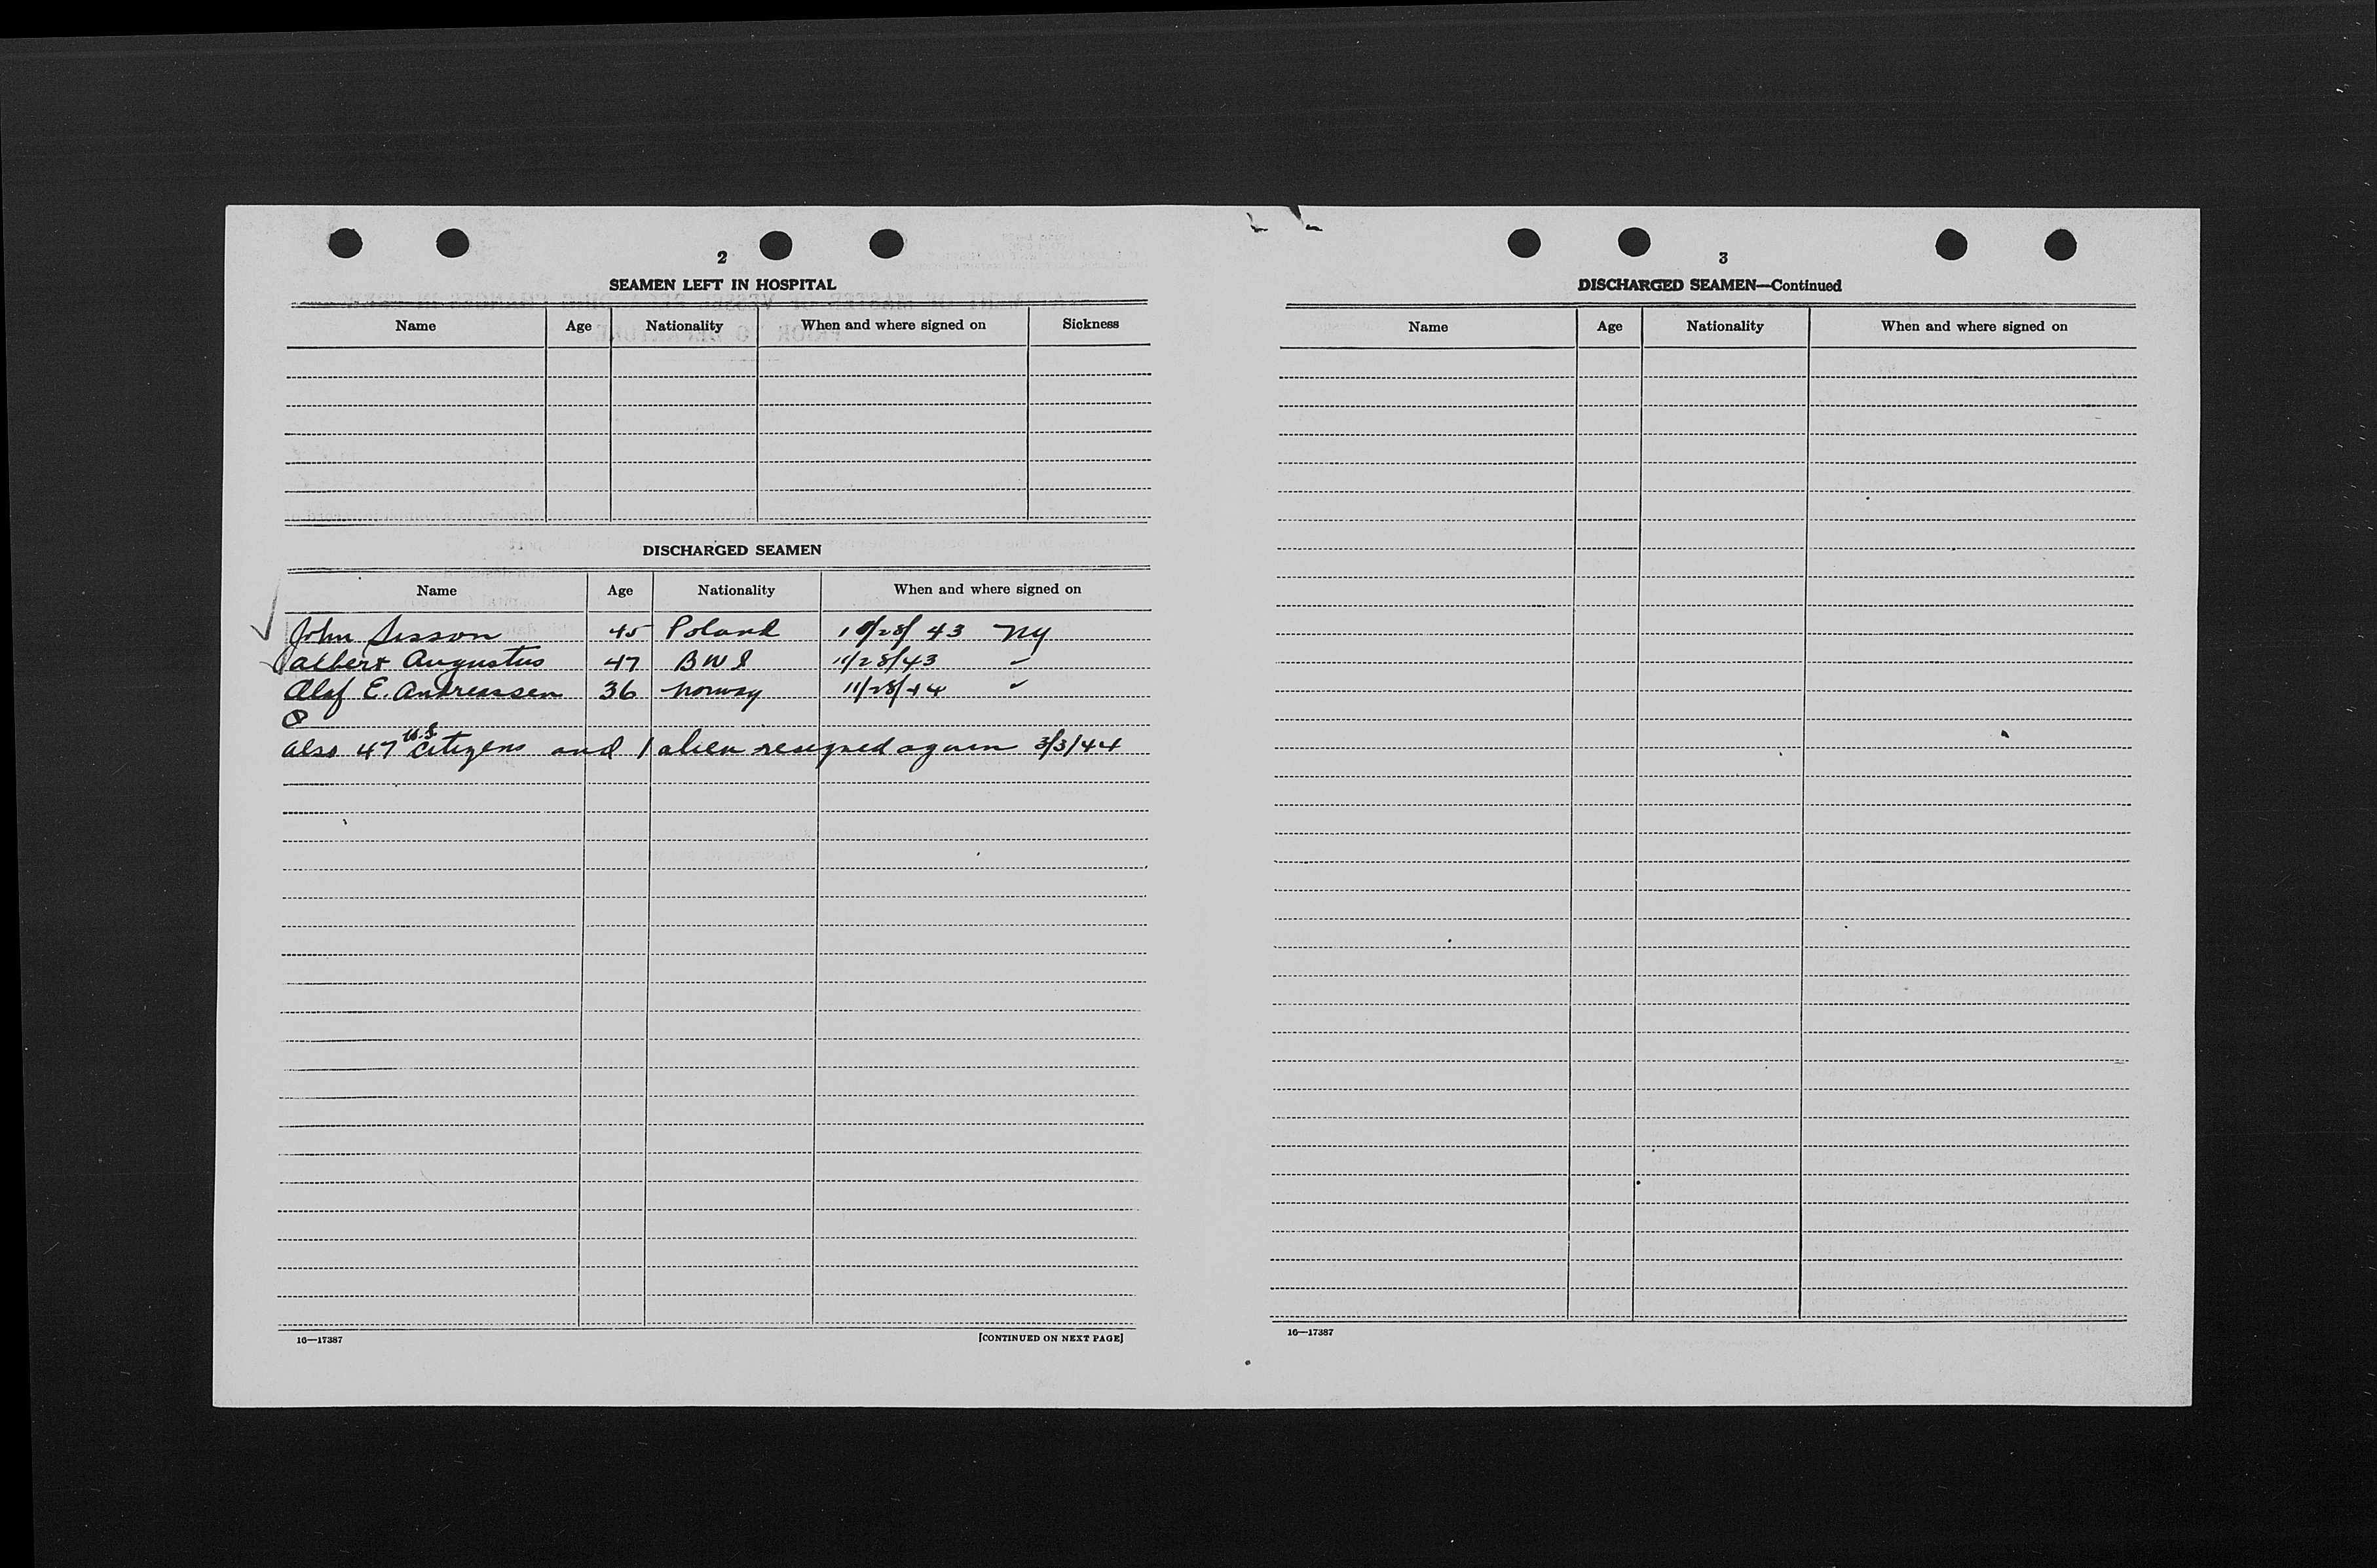 2
SEAMEN LEFT IN HOSPITAL
Name Age Nationality When and where signed on Sickness
DISCHARGED SEAMEN
Name Age Nationality When and where signed on
John Sisson 45 Poland 10/28/43 NY
Albert Augustus 47 BWI 11/28/43 "
Olaf E. Andreassen 36 Norway 11/28/44 "
also 47 U.S. citizens and 1 alien resigned again 3/3/44
16—17387 [CONTINUED ON NEXT PAGE]
3
DISCHARGED SEAMEN—Continued
Name Age Nationality When and where signed on
16—17387